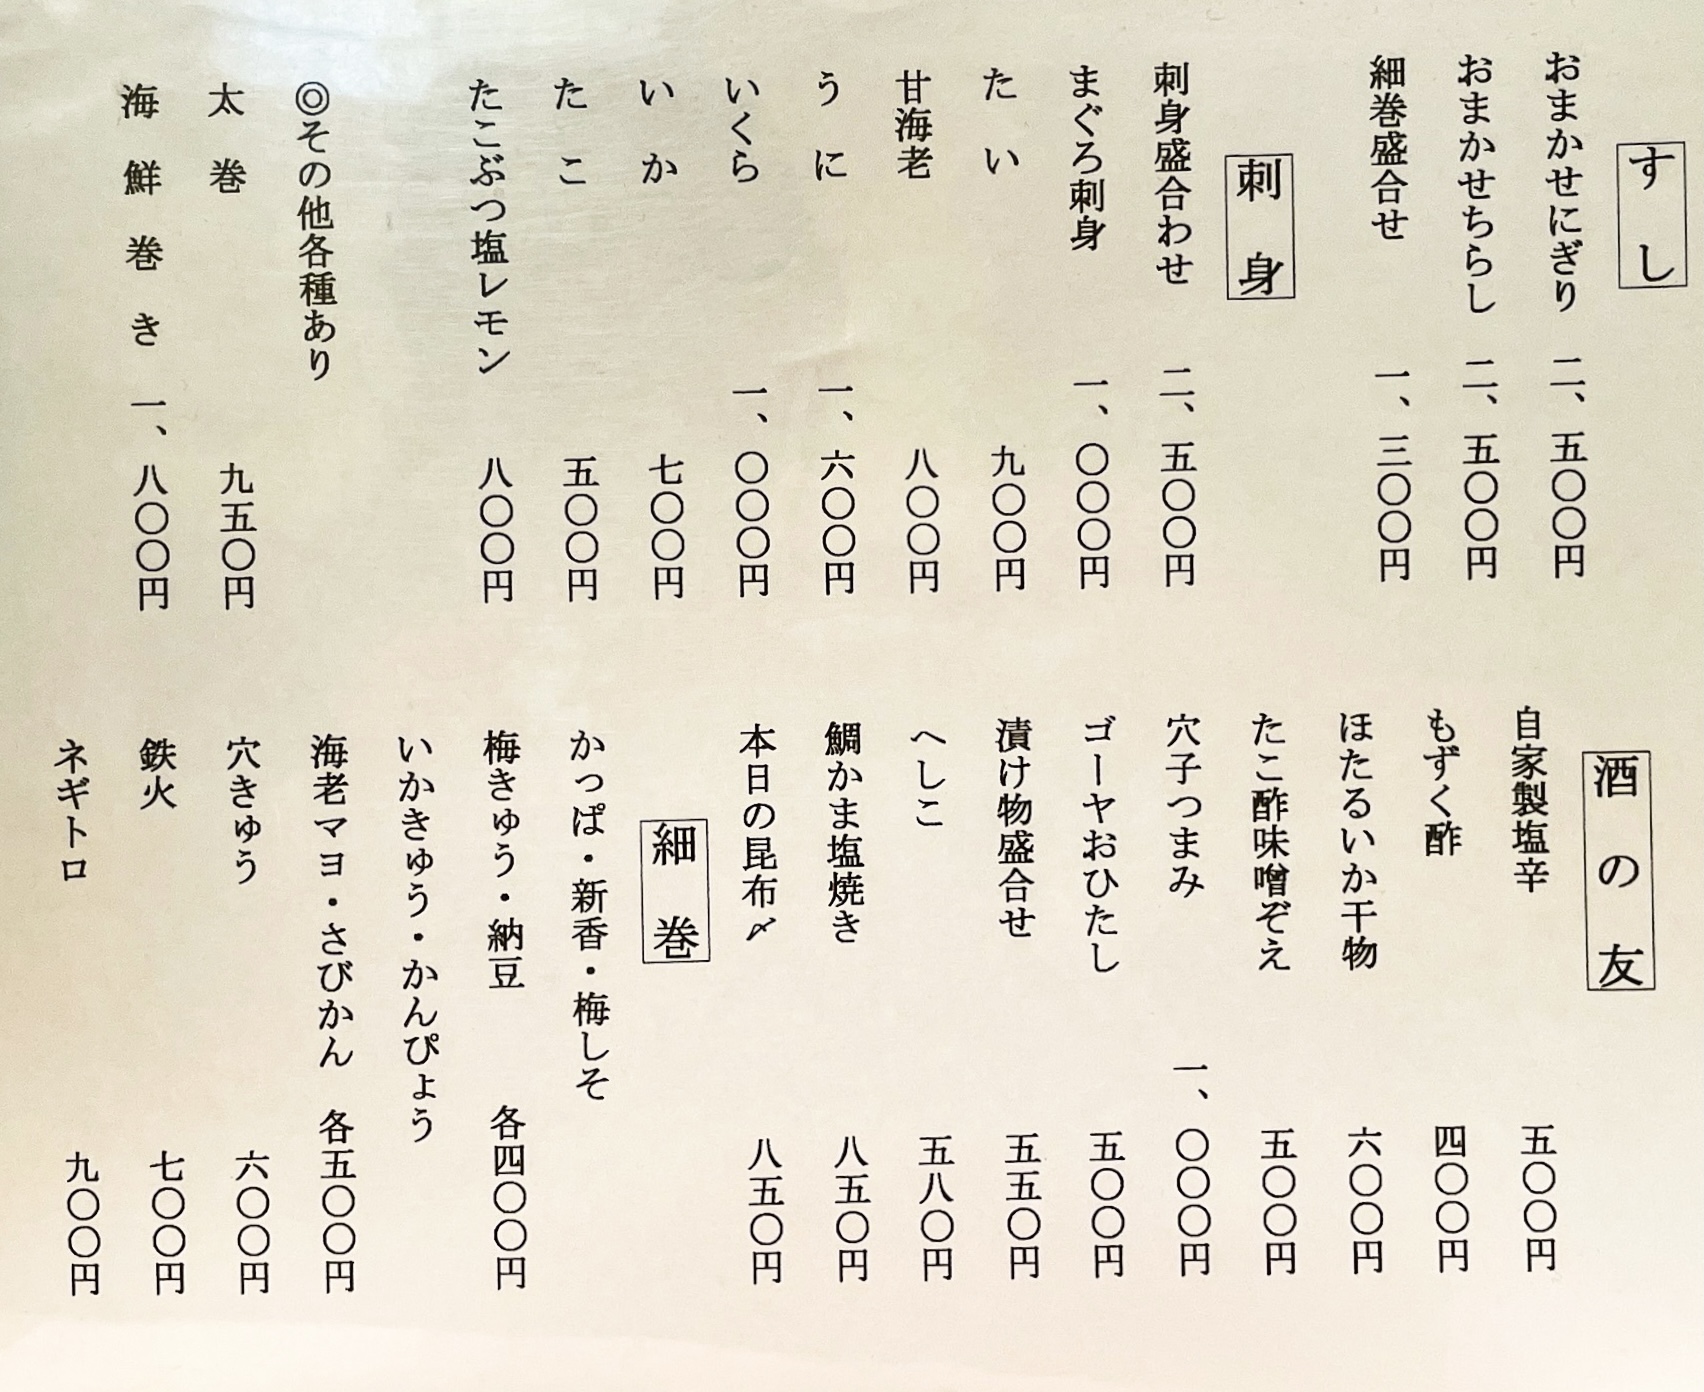 すし
おまかせにぎり 二、五〇〇円
おまかせちらし 二、五〇〇円
細巻盛合せ 一、三〇〇円
刺身
刺身盛合わせ 二、五〇〇円
まぐろ刺身 一、〇〇〇円
たい 九〇〇円
甘海老 八〇〇円
うに 一、六〇〇円
いくら 一、〇〇〇円
いか 七〇〇円
たこ 五〇〇円
たこぶつ塩レモン 八〇〇円
◎その他各種あり
太巻 九五〇円
海鮮巻き 一、八〇〇円
酒の友
自家製塩辛 五〇〇円
もずく酢 四〇〇円
ほたるいか干物 六〇〇円
たこ酢味噌ぞえ 五〇〇円
穴子つまみ 一、〇〇〇円
ゴーヤおひたし 五〇〇円
漬け物盛合せ 五五〇円
へしこ 五八〇円
鯛かま塩焼き 八五〇円
本日の昆布〆 八五〇円
細巻
かっぱ・新香・梅しそ
梅きゅう・納豆 各四〇〇円
いかきゅう・かんぴょう
海老マヨ・さびかん 各五〇〇円
穴きゅう 六〇〇円
鉄火 七〇〇円
ネギトロ 九〇〇円